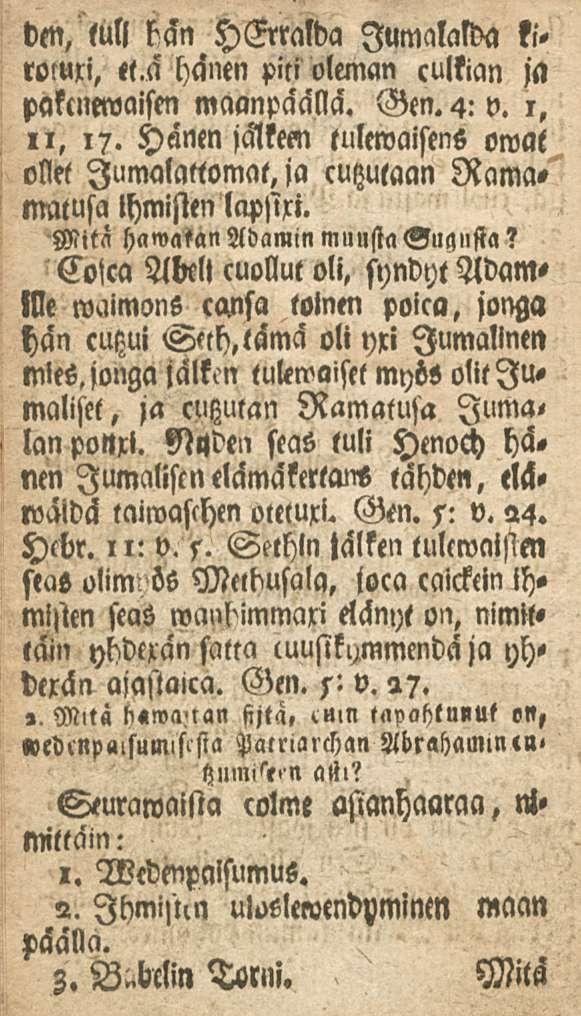 den, tuli hän HErralda Jumalalda ki-
rotuxi, et.ä hänen piti oleman culkian ja
pakenewaisen maanpäällä. Gen. 4: v. 1,
11, 17. Hänen jälkeen tulewaisens owat
ollet Jumalattomat, ja cutzutaan Rama-
matusa Ihmisten lapsixi.
Mitä hawatan Adamin muusta Sugusta?
Cosca Abeli cuollut oli, syndyt Adam-
ille waimons cansa toinen poica, jonga
hän cutzui Seth, tämä oli yxi Jumalinen
mies, jonga jälken tulewaiset myös olit Ju-
maliset, ja cutzutan Ramatusa Juma-
lan poitxi. Nijden seas tuli Henoch hä-
nen Jumalisen elämäkertans tähden, elä-
wäldä taiwaschen otetuxi. Gen. 5: v. 24.
Hebr. 11: v. 5. Sethin jälken tulewaisten
seas oli myös Methusala, joca caickein Ih-
misten seas wanhimmaxi elänyt on, nimit-
täin yhdexän satta cuusikymmendä ja yh-
dexän ajastaica. Gen. 5: v. 27.
2. Mitä hawaitan sijtä, cuin tapahtunut on,
wedenpaisumisesta Patriarchan Abrahamin cu-
tzumiseen asti?
Seurawaista colme asianhaaraa, ni-
mittäin:
1. Wedenpaisumus.
2. Ihmisten uloslewendyminen maan
päällä.
3. Babelin Torni. Mitä